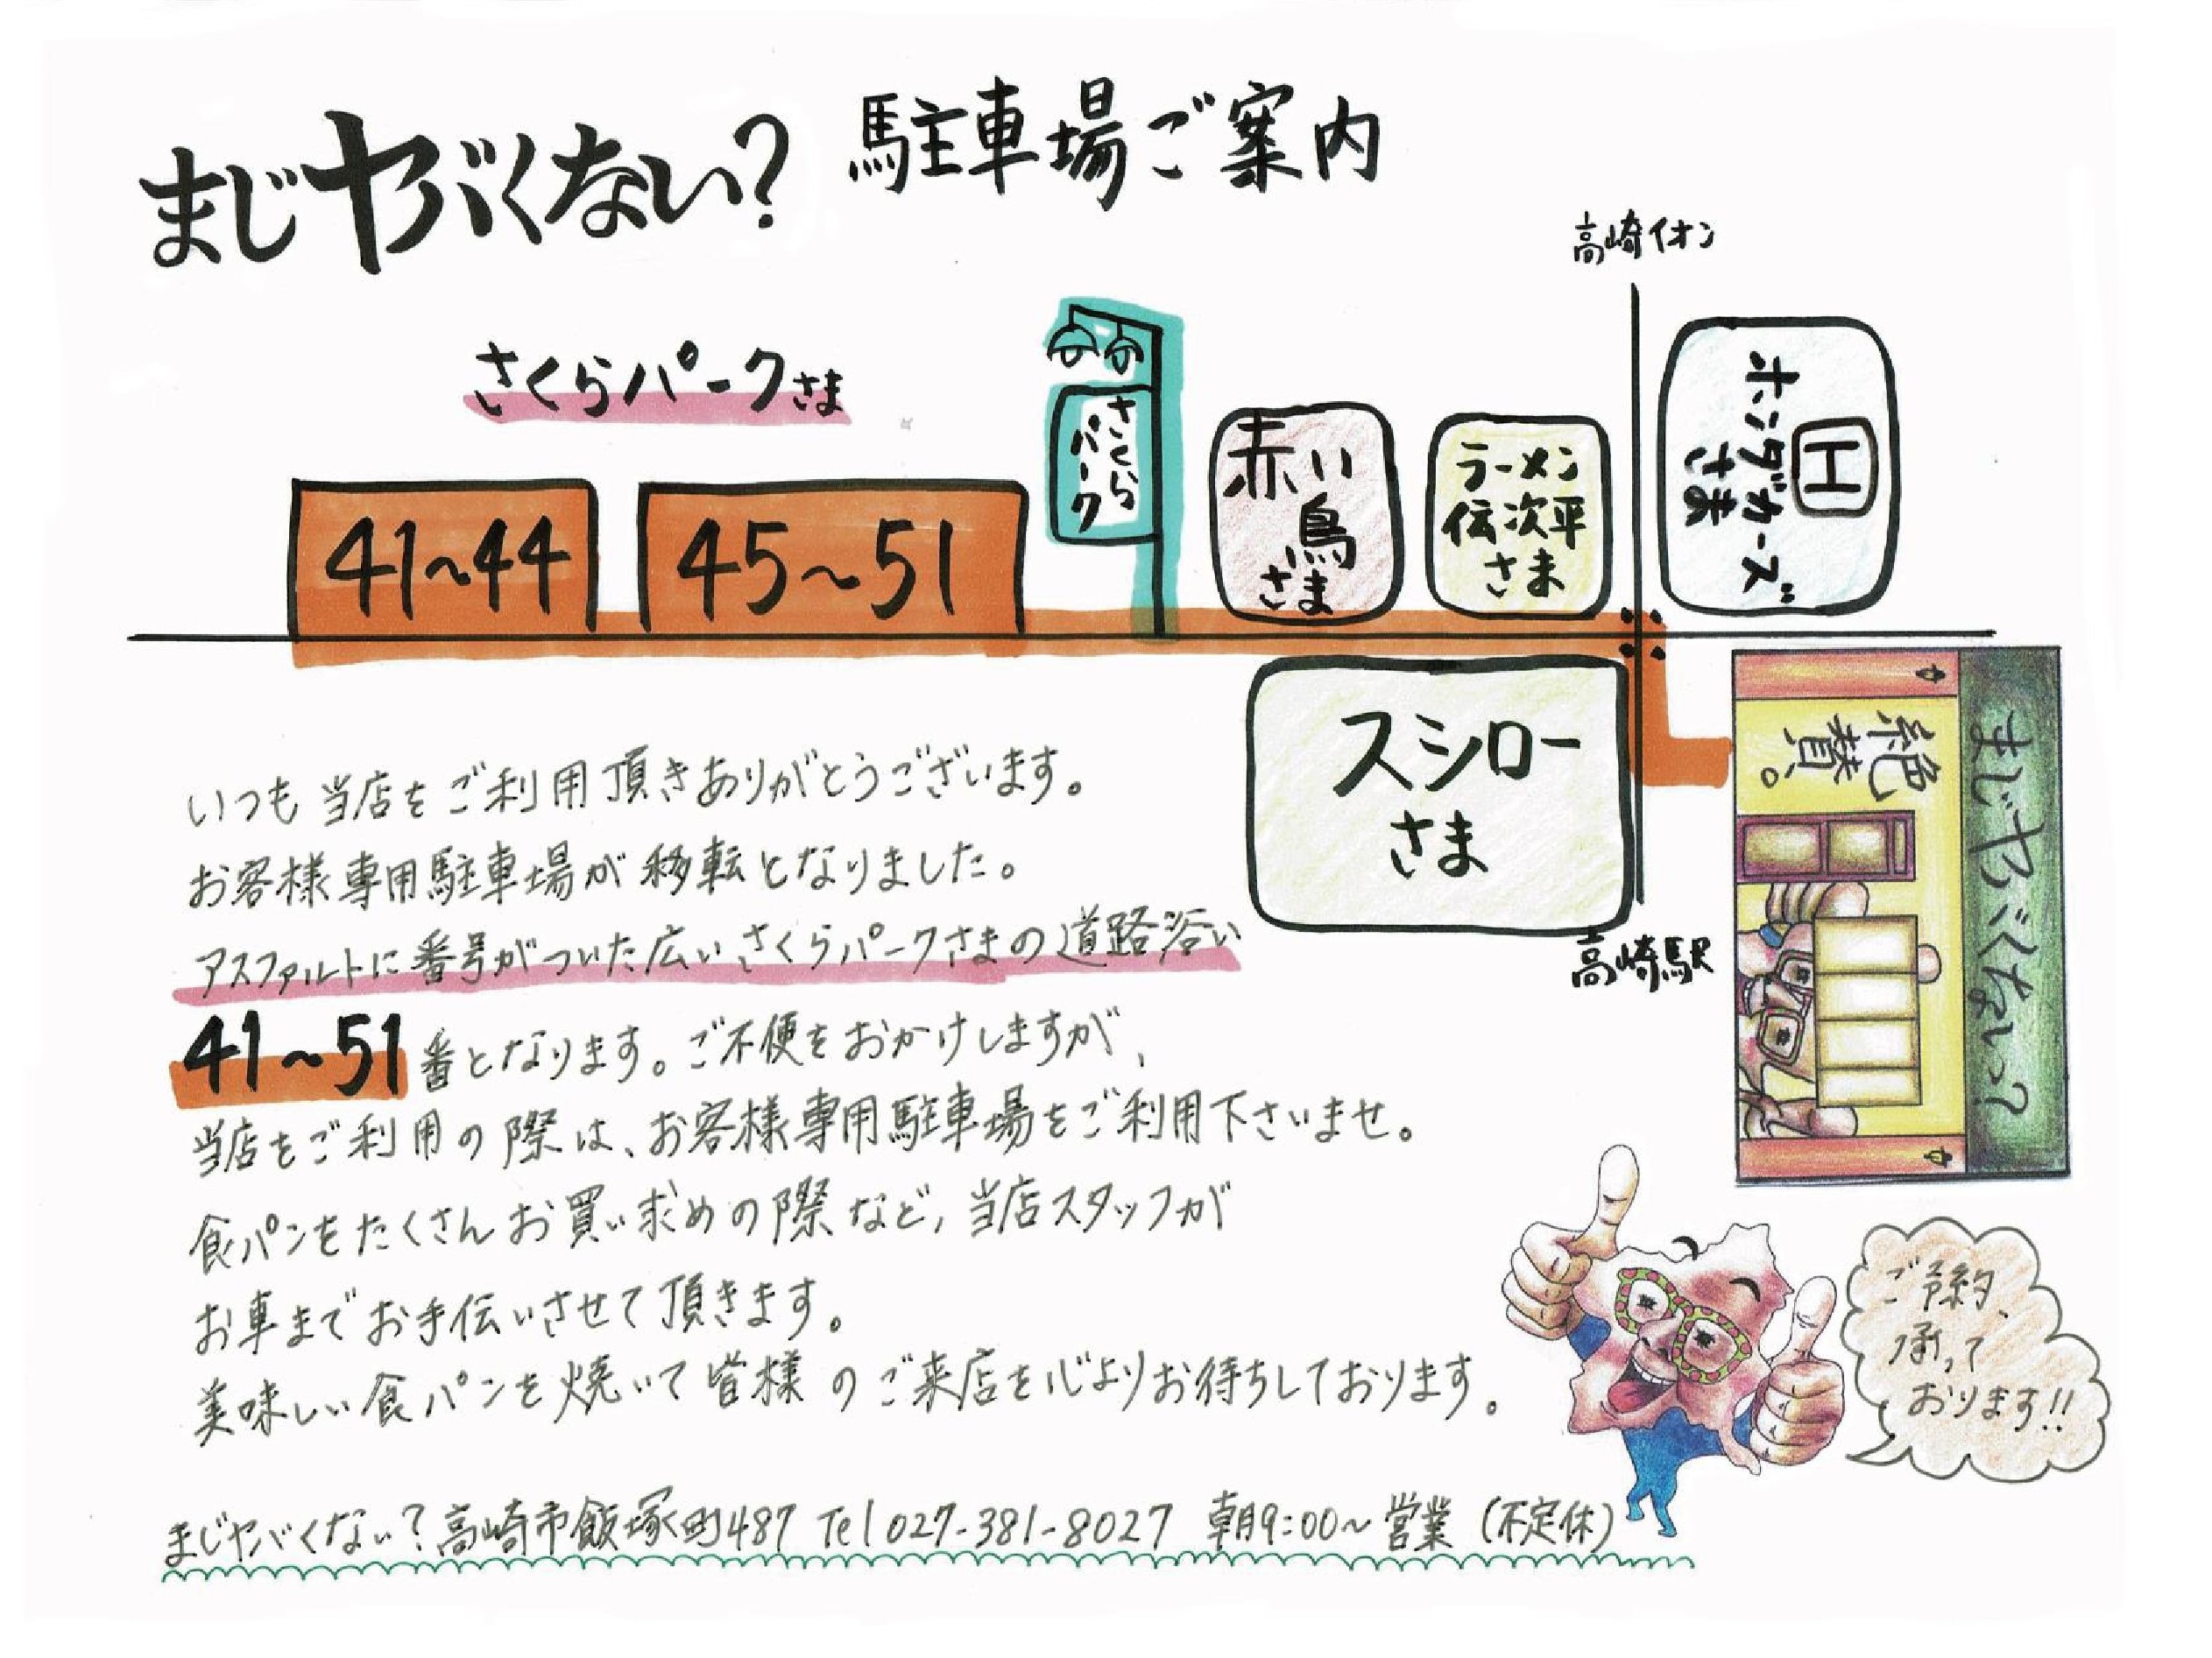 まじヤバくない? 駐車場ご案内
高崎イオン
さくらパークさま
さくら
パーク
赤い
鳥
さま
ラーメン
伝次平
さま
ホンダカーズ
さま
H
41~44
45~51
スシロー
さま
高崎駅
まじヤバくない?
絶
賛。
いつも当店をご利用頂きありがとうございます。
お客様専用駐車場が移転となりました。
アスファルトに番号がついた広いさくらパークさまの道路沿い
41~51番となります。ご不便をおかけしますが、
当店をご利用の際は、お客様専用駐車場をご利用下さいませ。
食パンをたくさんお買い求めの際など、当店スタッフが
お車までお手伝いさせて頂きます。
美味しい食パンを焼いて皆様のご来店を心よりお待ちしております。
ご予約、
承って
おります!!
まじヤバくない?高崎市飯塚町487 Tel 027-381-8027 朝9:00~営業(不定休)